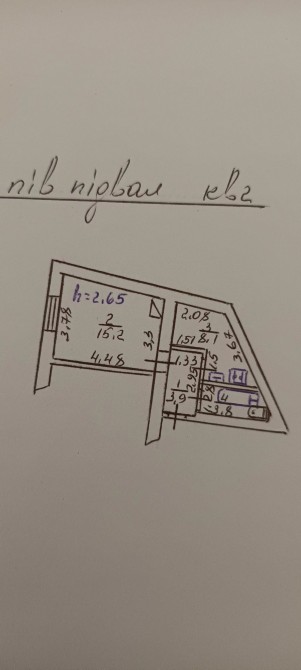 пів підвал кв2
h=2.65
2
15.2
3,78
3,5
4.48
2.08
3
8,1
1,51
1,5
3.67
1,33
2,95
1
3,9
4
3.8